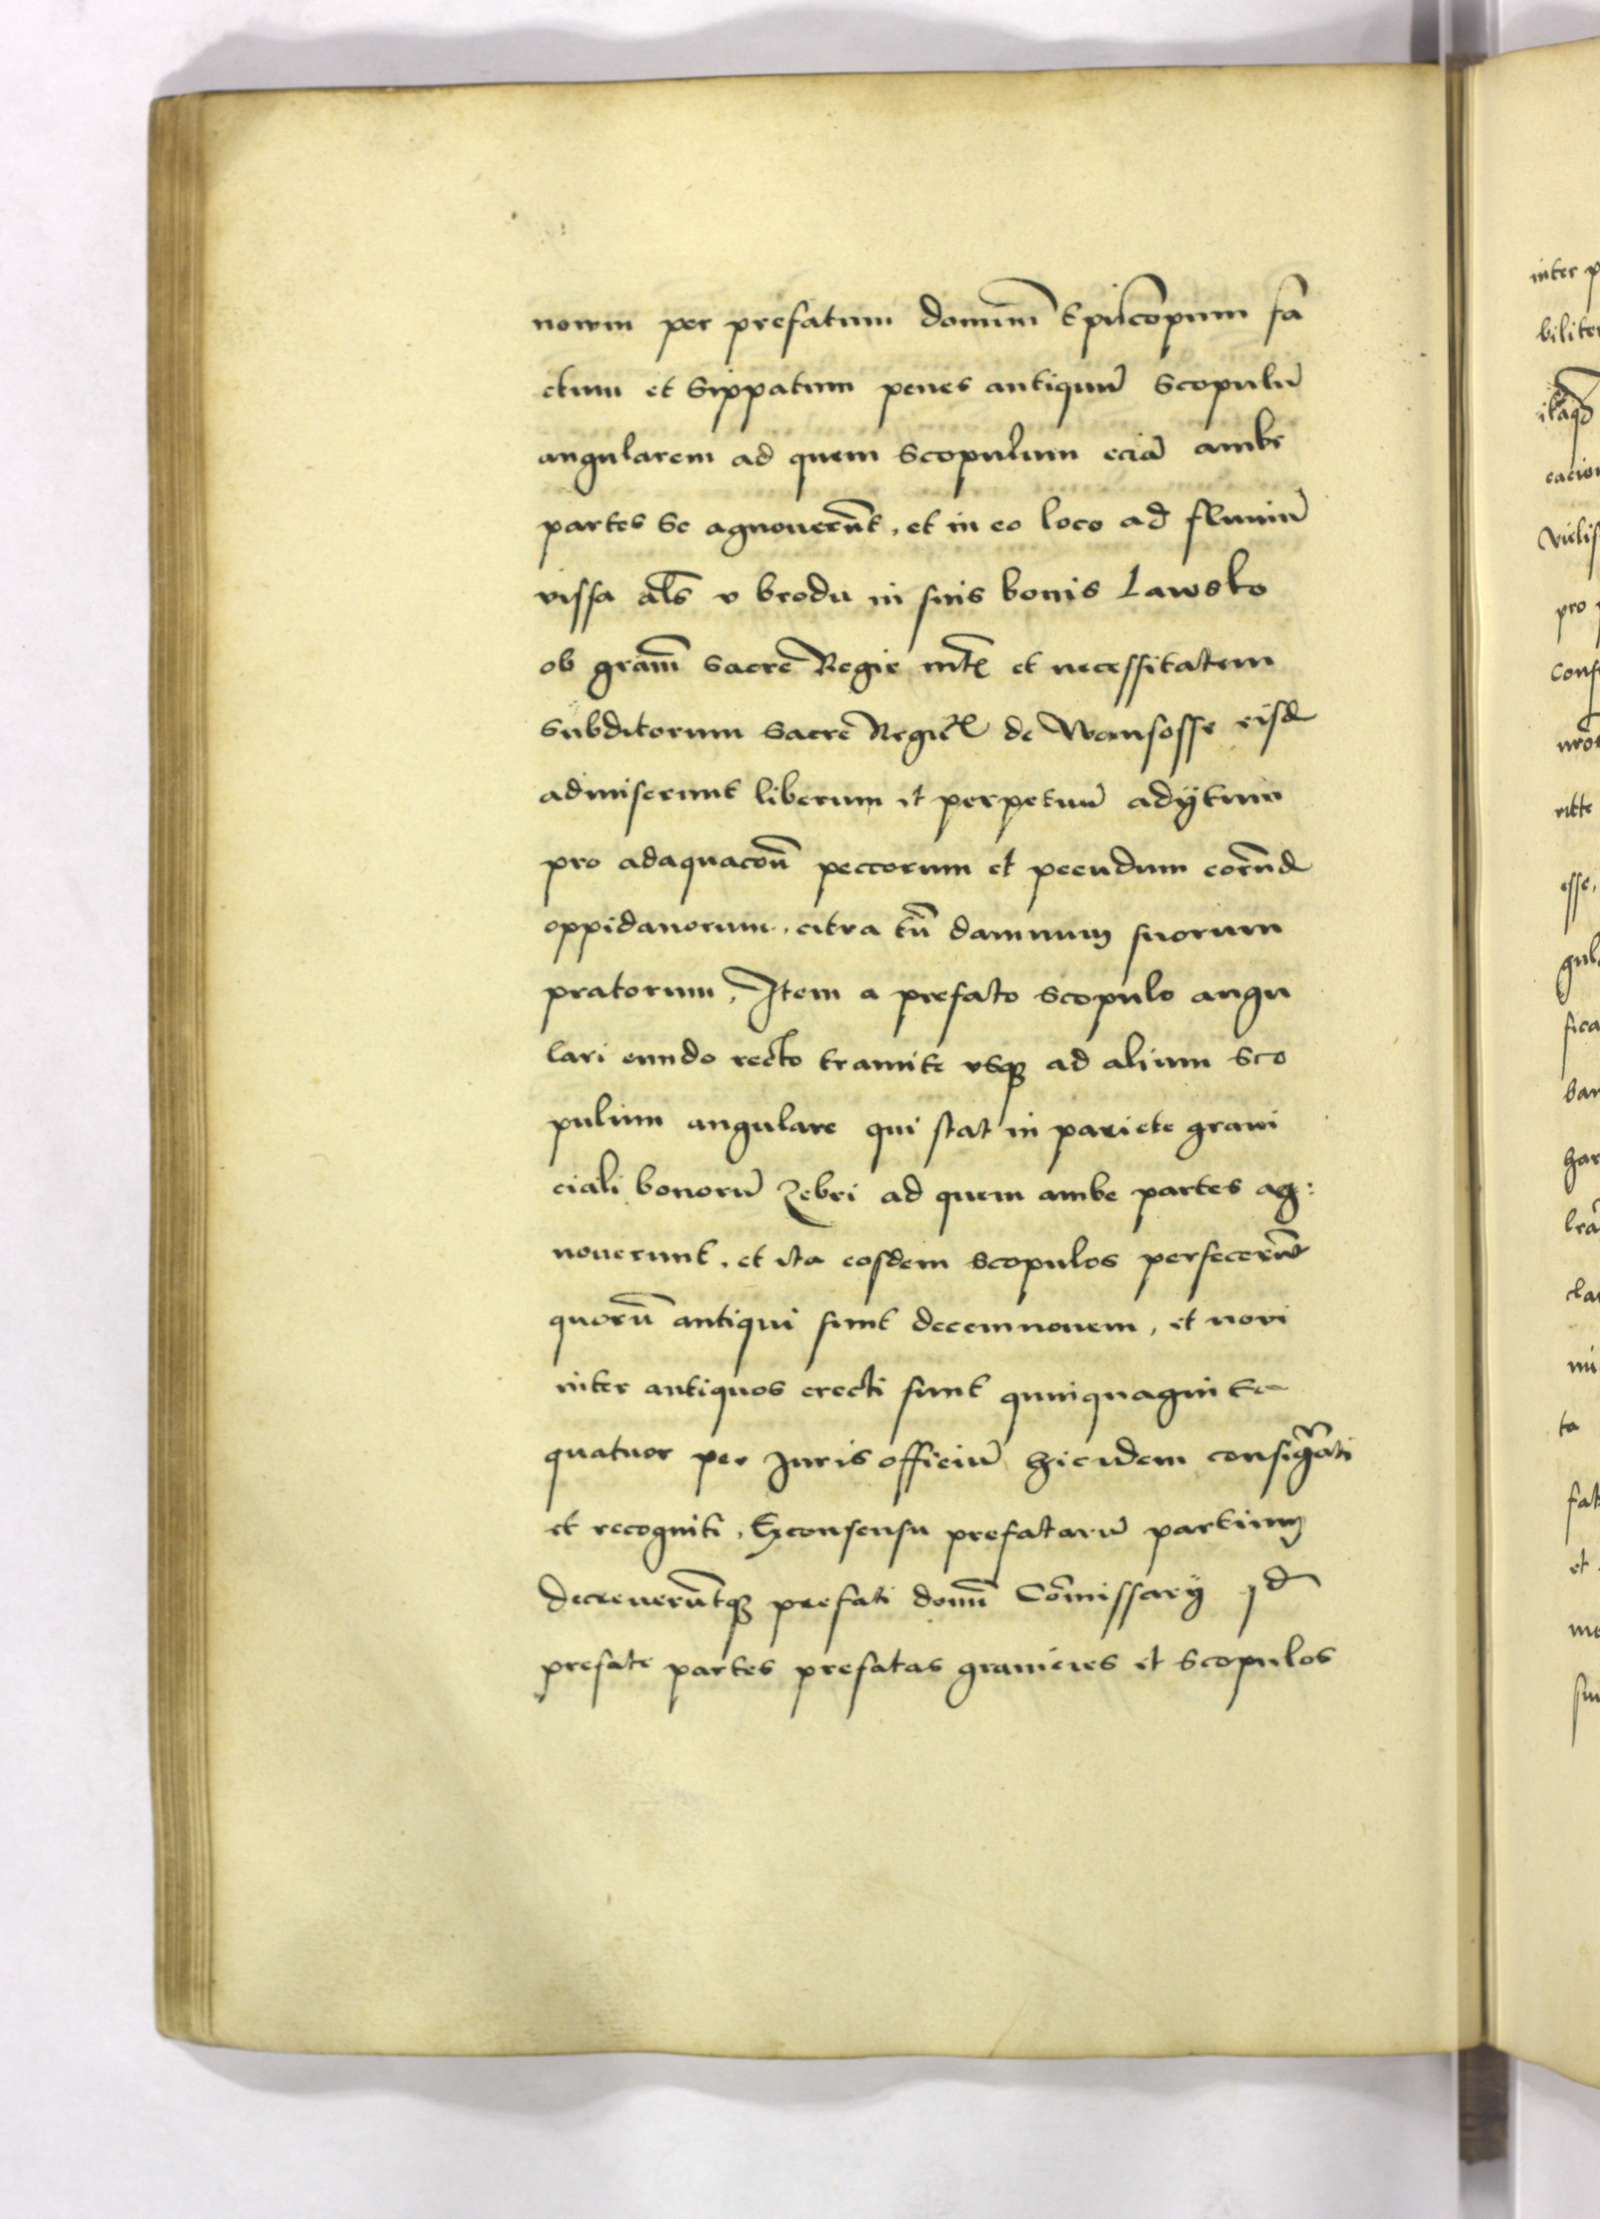 nowm per prefatum dominū Epūcopum fa
ctum et Sippatum penes antiquū Scopulū
angularem ad quem Scopulum eciā ambe
partes Se agnouerūt, et in eo loco ad fluuiū
vissa als̄ v brodu in suis bonis Lawsko
ob gram̄ Sacre Regie mt̄ꝭ et necessitatem
Subditorum Sacre Regie de Wansosse eisd
admiserunt liberum et perpetuū adÿtum
pro adaquacōn̄ peccorum et pecudum eorūd
oppidanorum, citra tn̄ damnum suorum
pratorum, Item a prefato Scopulo angu
lari eundo recto tramite vsqꝫ ad alium Sco
pulum angulare qui stat in pariete grani
ciali bonorū Zebri ad quem ambe partes ag:
nouerunt, et ita eosdem scopulos perfecerūt
quorū antiqui sunt decemnouem, et novi
inter antiquos erecti sunt quinquaginta
quatuor per Juris officiū hic idem consigāti
et recogniti, consensu prefatarū partium
Decreueruntqꝫ prefati domī Cōmissarÿ qd
prefate partes prefatas granicies et Scopulos
inter p
pro
esse,
ta
et